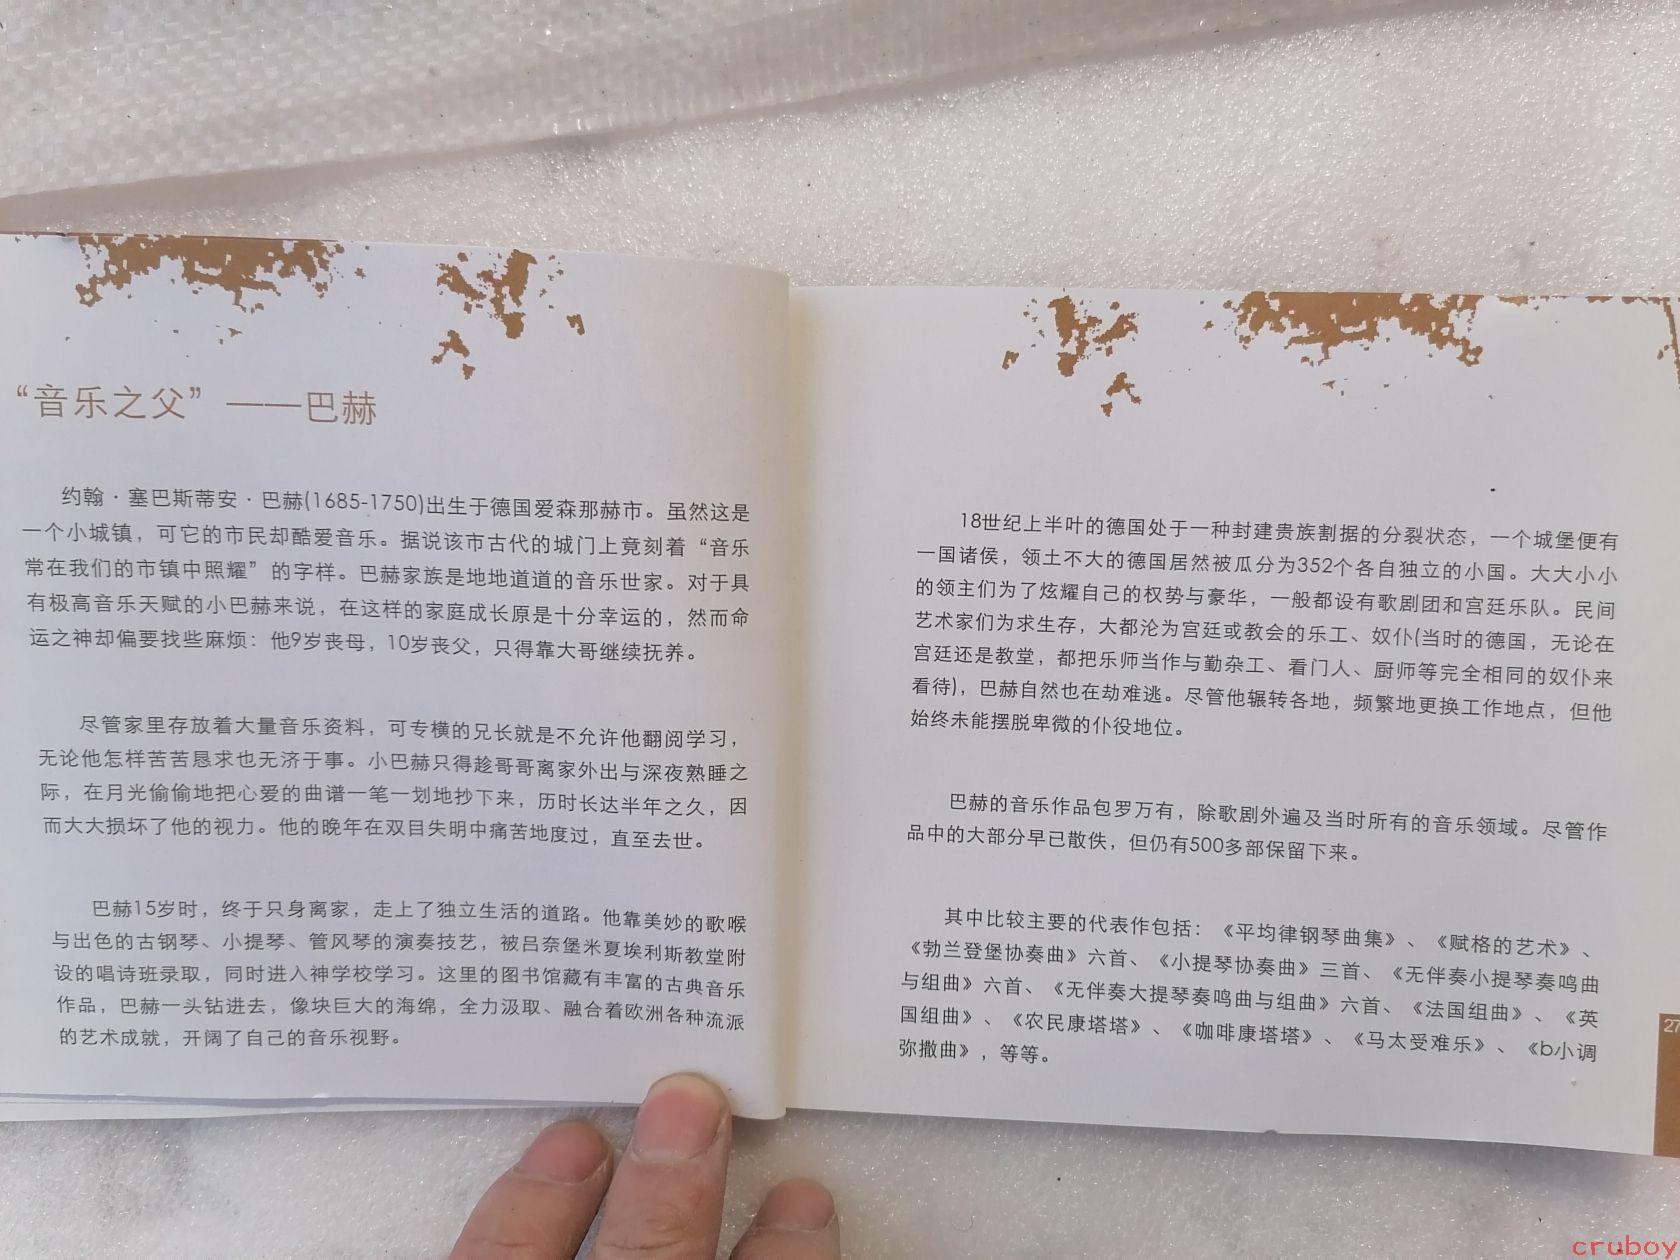 “音乐之父” ——巴赫
约翰·塞巴斯蒂安·巴赫(1685-1750)出生于德国爱森那赫市。虽然这是
一个小城镇，可它的市民却酷爱音乐。据说该市古代的城门上竟刻着“音乐
常在我们的市镇中照耀”的字样。巴赫家族是地地道道的音乐世家。对于具
有极高音乐天赋的小巴赫来说，在这样的家庭成长原是十分幸运的，然而命
运之神却偏要找些麻烦：他9岁丧母，10岁丧父，只得靠大哥继续抚养。
尽管家里存放着大量音乐资料，可专横的兄长就是不允许他翻阅学习，
无论他怎样苦苦恳求也无济于事。小巴赫只得趁哥哥离家外出与深夜熟睡之
际，在月光偷偷地把心爱的曲谱一笔一划地抄下来，历时长达半年之久，因
而大大损坏了他的视力。他的晚年在双目失明中痛苦地度过，直至去世。
巴赫15岁时，终于只身离家，走上了独立生活的道路。他靠美妙的歌喉
与出色的古钢琴、小提琴、管风琴的演奏技艺，被吕奈堡米夏埃利斯教堂附
设的唱诗班录取，同时进入神学校学习。这里的图书馆藏有丰富的古典音乐
作品，巴赫一头钻进去，像块巨大的海绵，全力汲取、融合着欧洲各种流派
的艺术成就，开阔了自己的音乐视野。
18世纪上半叶的德国处于一种封建贵族割据的分裂状态，一个城堡便有
一国诸侯，领土不大的德国居然被瓜分为352个各自独立的小国。大大小小
的领主们为了炫耀自己的权势与豪华，一般都设有歌剧团和宫廷乐队。民间
艺术家们为求生存，大都沦为宫廷或教会的乐工、奴仆(当时的德国，无论在
宫廷还是教堂，都把乐师当作与勤杂工、看门人、厨师等完全相同的奴仆来
看待)，巴赫自然也在劫难逃。尽管他辗转各地，频繁地更换工作地点，但他
始终未能摆脱卑微的仆役地位。
巴赫的音乐作品包罗万有，除歌剧外遍及当时所有的音乐领域。尽管作
品中的大部分早已散佚，但仍有500多部保留下来。
其中比较主要的代表作包括：《平均律钢琴曲集》、《赋格的艺术》、
《勃兰登堡协奏曲》六首、《小提琴协奏曲》三首、《无伴奏小提琴奏鸣曲
与组曲》六首、《无伴奏大提琴奏鸣曲与组曲》六首、《法国组曲》、《英
国组曲》、《农民康塔塔》、《咖啡康塔塔》、《马太受难乐》、《b小调
弥撒曲》，等等。
27
cruboy